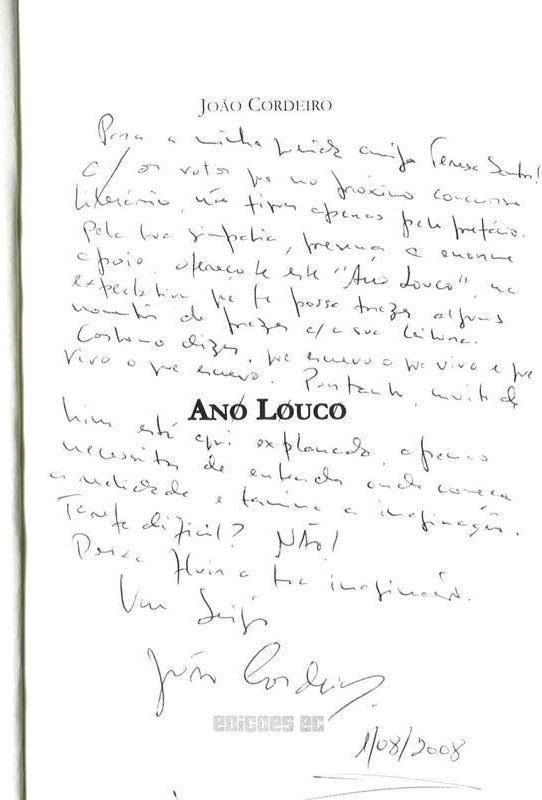 JOÃO CORDEIRO
Para a minha amiga Teresa Santos!
c/ os votos que no próximo concurso
literário, não fiques apenas pelo prefácio.
Pela tua simpatia, presença e enorme
apoio, ofereço-te este "Ano Louco", na
expectativa que te possa trazer alguns
momentos de prazer c/ a sua leitura.
Costumo dizer, que escrevo o que vivo e que
vivo o que escrevo. Portanto, muito de
ANO LOUCO
mim está aqui explanado, apenas
necessitas de entender onde começa
a realidade e termina a imaginação.
Tarefa difícil? NÃO!
Deixa fluir a tua imaginação.
Um beijo
João Cordeiro
EDIÇÕES EC
1/08/2008